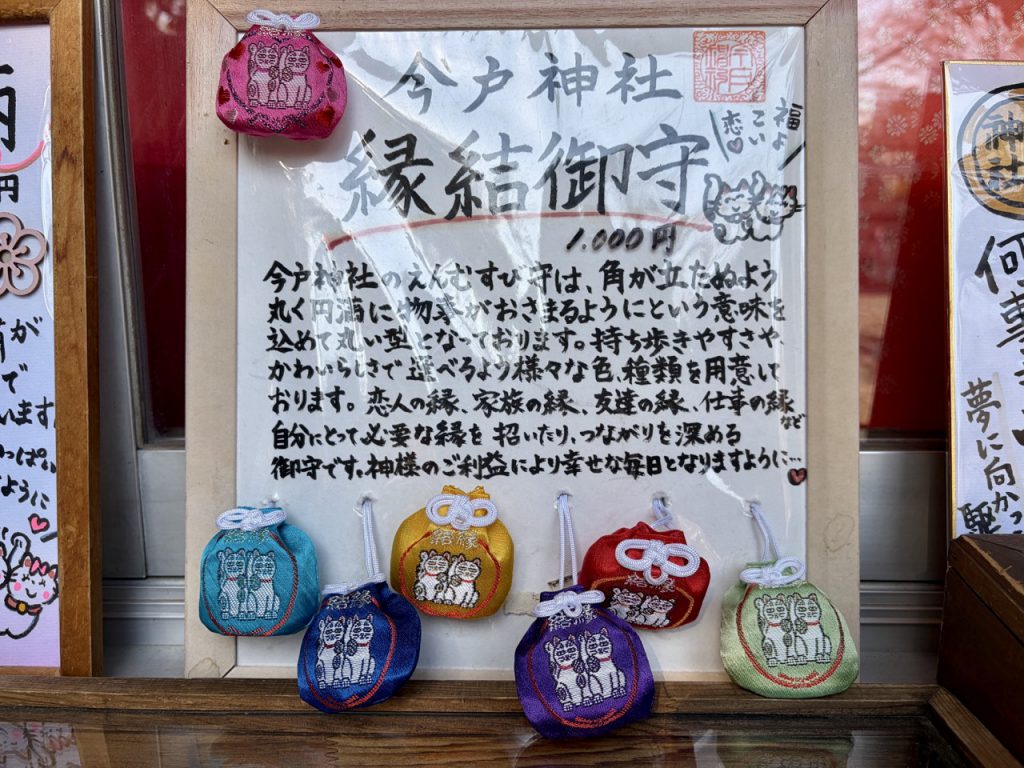 今戸神社
縁結御守
福よ
こい
恋
1.000円
今戸神社のえんむすび守は、角が立たぬよう
丸く円満に物事がおさまるようにという意味を
込めて丸い型となっております。持ち歩きやすさや
かわいらしさで選べるよう様々な色、種類を用意して
おります。恋人の縁、家族の縁、友達の縁、仕事の縁など
自分にとって必要な縁を招いたり、つながりを深める
御守です。神様のご利益により幸せな毎日となりますように…
結縁
円
が
で
います
ように
神社
何事
夢に向かっ
駆